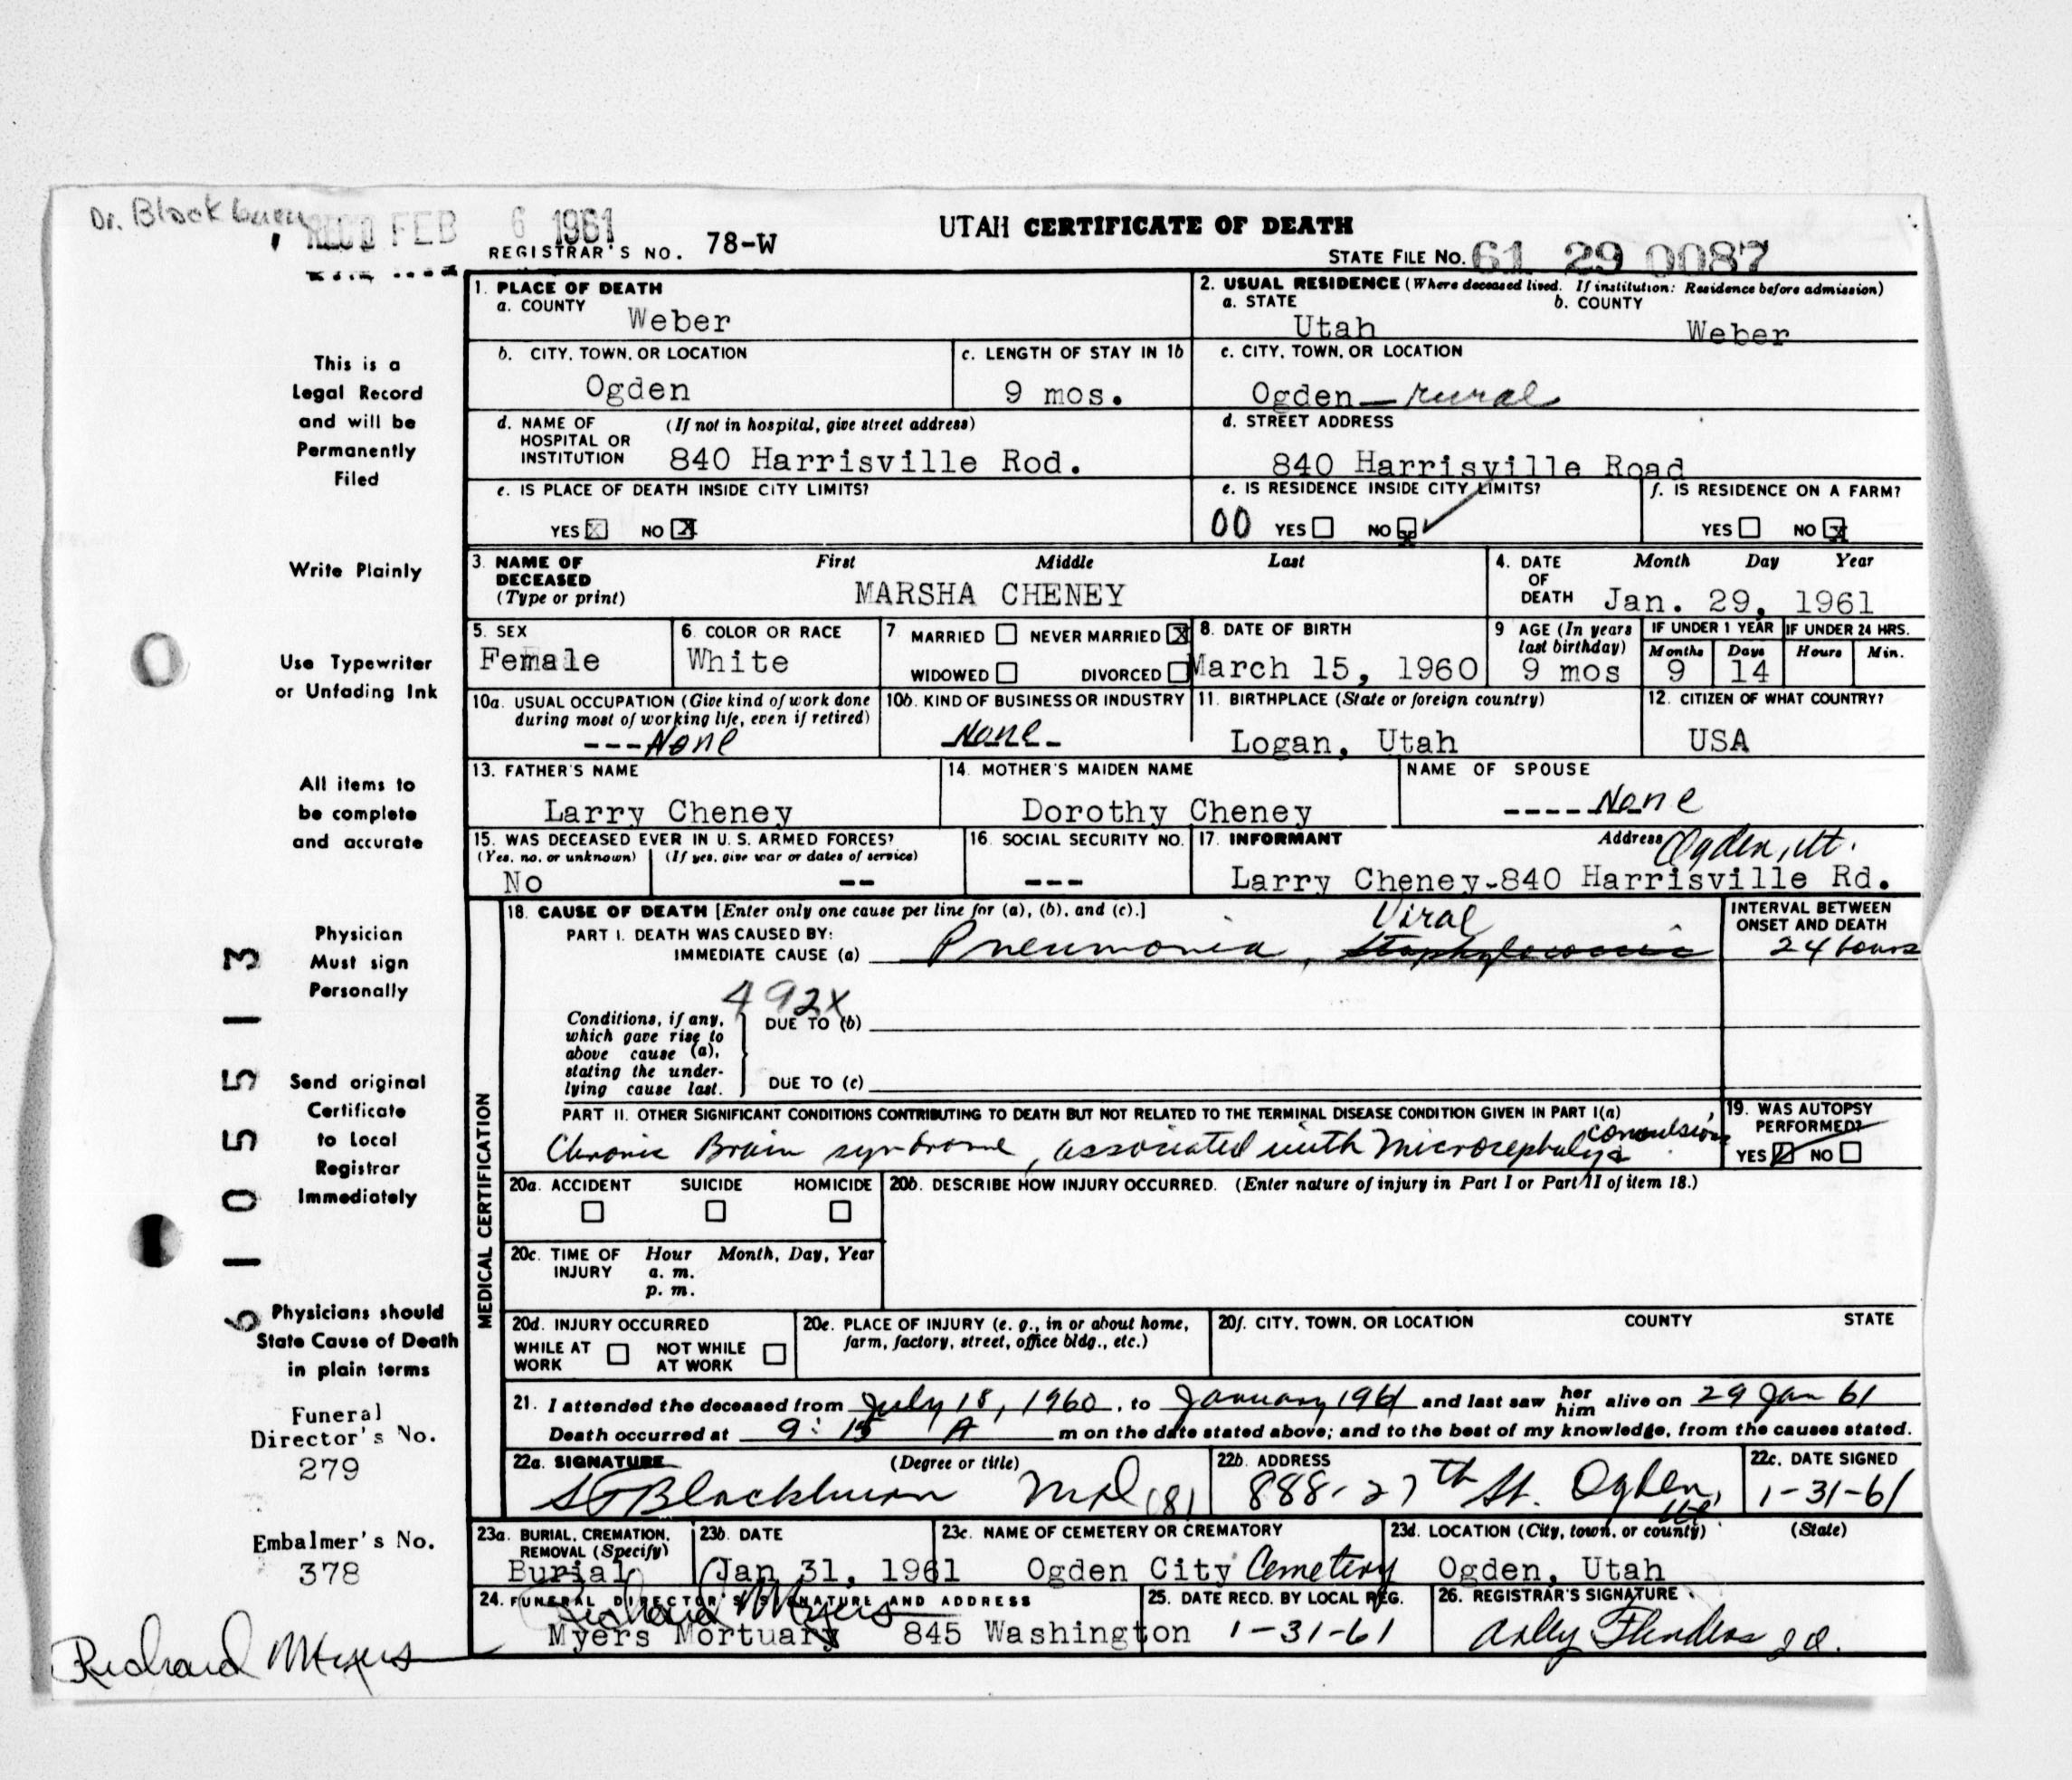 Dr. Blackburn
REC'D FEB 6 1961
UTAH CERTIFICATE OF DEATH
REGISTRAR'S NO. 78-W
STATE FILE NO. 61 29 0087
This is a
Legal Record
and will be
Permanently
Filed
Write Plainly
Use Typewriter
or Unfading Ink
All items to
be complete
and accurate
Physician
Must sign
Personally
Send original
Certificate
to Local
Registrar
Immediately
Physicians should
State Cause of Death
in plain terms
Funeral
Director's No.
279
Embalmer's No.
378
Richard Myers
6105513
1. PLACE OF DEATH
a. COUNTY
Weber
2. USUAL RESIDENCE (Where deceased lived. If institution: Residence before admission)
a. STATE b. COUNTY
Utah Weber
b. CITY, TOWN, OR LOCATION
Ogden
c. LENGTH OF STAY IN 1b
9 mos.
c. CITY, TOWN, OR LOCATION
Ogden — rural
d. NAME OF (If not in hospital, give street address)
HOSPITAL OR
INSTITUTION 840 Harrisville Rod.
d. STREET ADDRESS
840 Harrisville Road
e. IS PLACE OF DEATH INSIDE CITY LIMITS?
YES X NO X
e. IS RESIDENCE INSIDE CITY LIMITS?
00 YES NO X ✓
f. IS RESIDENCE ON A FARM?
YES NO X
3. NAME OF First Middle Last
DECEASED
(Type or print) MARSHA CHENEY
4. DATE Month Day Year
OF
DEATH Jan. 29, 1961
5. SEX
Female
6. COLOR OR RACE
White
7 MARRIED NEVER MARRIED X
WIDOWED DIVORCED
8. DATE OF BIRTH
March 15, 1960
9 AGE (In years
last birthday)
9 mos
IF UNDER 1 YEAR IF UNDER 24 HRS.
Months Days Hours Min.
9 14
10a. USUAL OCCUPATION (Give kind of work done
during most of working life, even if retired)
---None
10b. KIND OF BUSINESS OR INDUSTRY
None-
11. BIRTHPLACE (State or foreign country)
Logan, Utah
12. CITIZEN OF WHAT COUNTRY?
USA
13. FATHER'S NAME
Larry Cheney
14. MOTHER'S MAIDEN NAME
Dorothy Cheney
NAME OF SPOUSE
----None
15. WAS DECEASED EVER IN U. S. ARMED FORCES?
(Yes, no, or unknown) (If yes, give war or dates of service)
No --
16. SOCIAL SECURITY NO.
---
17. INFORMANT Address Ogden, Ut.
Larry Cheney-840 Harrisville Rd.
MEDICAL CERTIFICATION
18. CAUSE OF DEATH [Enter only one cause per line for (a), (b), and (c).]
PART I. DEATH WAS CAUSED BY: Viral
IMMEDIATE CAUSE (a) Pneumonia, Staphylococcic
INTERVAL BETWEEN
ONSET AND DEATH
24 hours
492X
Conditions, if any,
which gave rise to
above cause (a),
stating the under-
lying cause last.
DUE TO (b)
DUE TO (c)
PART II. OTHER SIGNIFICANT CONDITIONS CONTRIBUTING TO DEATH BUT NOT RELATED TO THE TERMINAL DISEASE CONDITION GIVEN IN PART I(a)
Chronic Brain syndrome, associated with Microcephaly & convulsions
19. WAS AUTOPSY
PERFORMED?
YES NO
20a. ACCIDENT SUICIDE HOMICIDE
20b. DESCRIBE HOW INJURY OCCURRED. (Enter nature of injury in Part I or Part II of item 18.)
20c. TIME OF Hour Month, Day, Year
INJURY a. m.
p. m.
20d. INJURY OCCURRED
WHILE AT NOT WHILE
WORK AT WORK
20e. PLACE OF INJURY (e. g., in or about home,
farm, factory, street, office bldg., etc.)
20f. CITY, TOWN, OR LOCATION COUNTY STATE
21. I attended the deceased from July 18, 1960, to January 1961 and last saw her him alive on 29 Jan 61
Death occurred at 9:15 A m on the date stated above; and to the best of my knowledge, from the causes stated.
22a. SIGNATURE (Degree or title)
Blackburn MD (8)
22b. ADDRESS
888-27th St. Ogden, Ut.
22c. DATE SIGNED
1-31-61
23a. BURIAL, CREMATION,
REMOVAL (Specify)
Burial
23b. DATE
Jan 31, 1961
23c. NAME OF CEMETERY OR CREMATORY
Ogden City Cemetery
23d. LOCATION (City, town, or county) (State)
Ogden, Utah
24. FUNERAL DIRECTOR'S SIGNATURE AND ADDRESS
Richard Myers
Myers Mortuary 845 Washington
25. DATE RECD. BY LOCAL REG.
1-31-61
26. REGISTRAR'S SIGNATURE